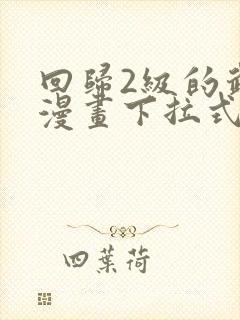 回歸2級的
漫畫下拉式
四葉荷